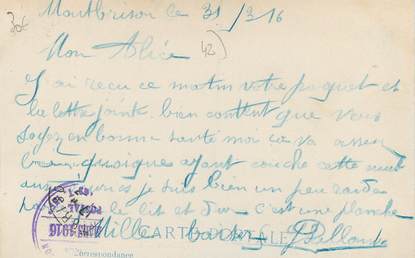 Montbrison le 31/3/16
30€
42)
Mon Alice
J'ai reçu ce matin votre paquet et
la lettre jointe bien content que vous
soyez en bonne santé moi ça va assez
bien quoique ayant couché cette nuit
je suis bien un peu
le lit et dur c'est une planche
Mille
CARTE POSTALE
Correspondance
1916